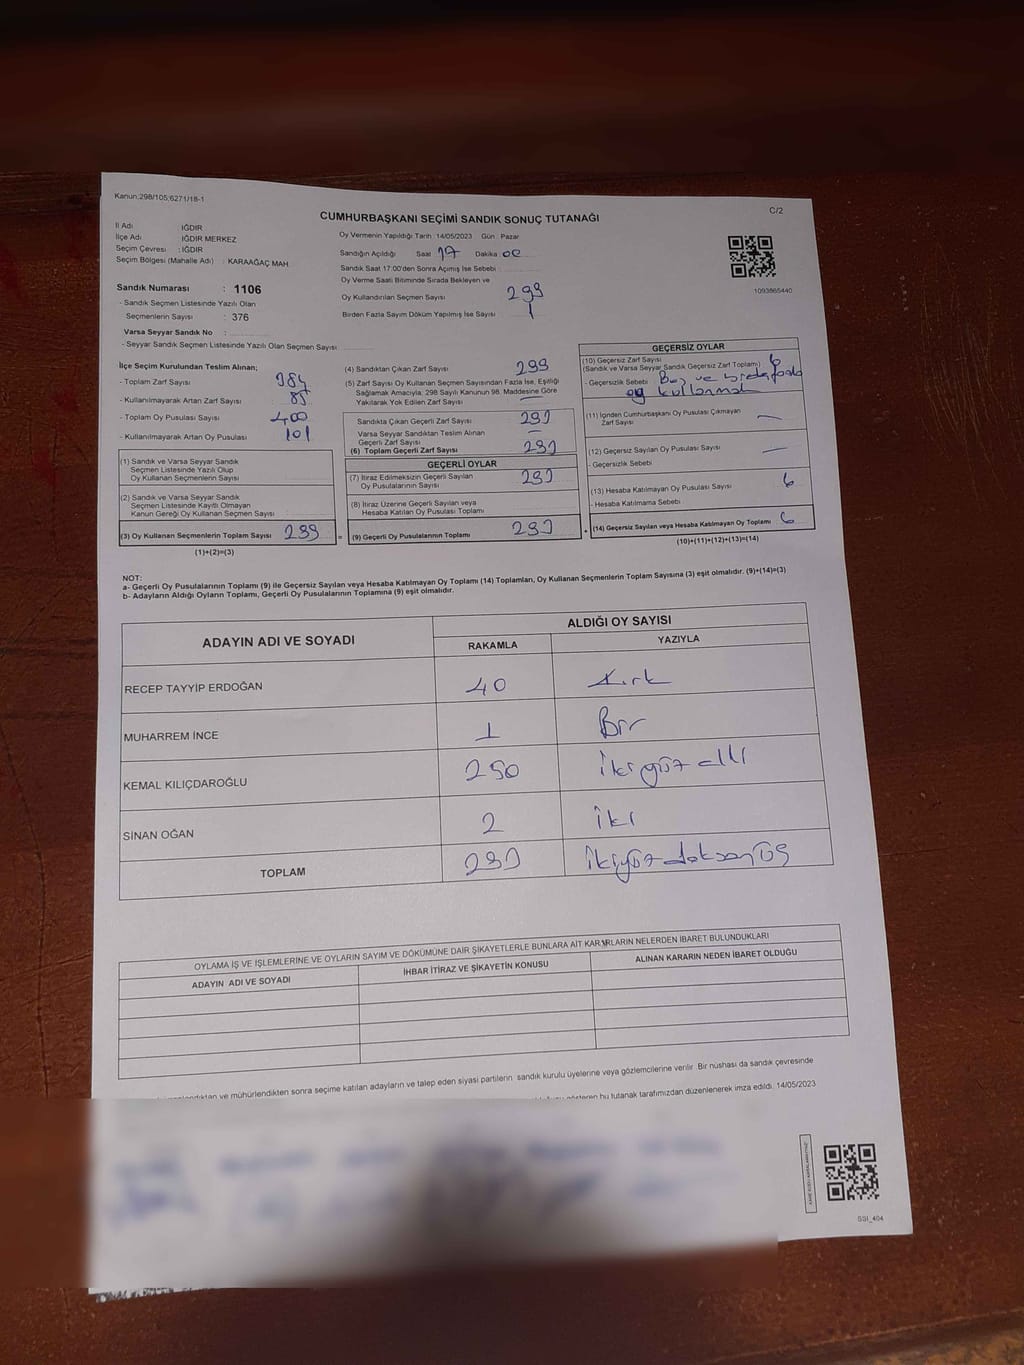 Kanun:298/105;6271/18-1
C/2
CUMHURBAŞKANI SEÇİMİ SANDIK SONUÇ TUTANAĞI
İl Adı : IĞDIR
İlçe Adı IĞDIR MERKEZ
Seçim Çevresi : IĞDIR
Seçim Bölgesi (Mahalle Adı) : KARAAĞAÇ MAH.
Sandık Numarası : 1106
- Sandık Seçmen Listesinde Yazılı Olan
Seçmenlerin Sayısı : 376
Varsa Seyyar Sandık No :
- Seyyar Sandık Seçmen Listesinde Yazılı Olan Seçmen Sayısı
Oy Vermenin Yapıldığı Tarih :14/05/2023 Gün : Pazar
Sandığın Açıldığı Saat 17 Dakika 00
Sandık Saat 17:00'den Sonra Açımış İse Sebebi :
Oy Verme Saati Bitiminde Sırada Bekleyen ve
Oy Kullandırılan Seçmen Sayısı 299
Birden Fazla Sayım Döküm Yapılmış İse Sayısı 1
1093865440
İlçe Seçim Kurulundan Teslim Alınan;
- Toplam Zarf Sayısı 384
- Kullanılmayarak Artan Zarf Sayısı 85
- Toplam Oy Pusulası Sayısı 400
- Kullanılmayarak Artan Oy Pusulası 101
(1) Sandık ve Varsa Seyyar Sandık
Seçmen Listesinde Yazılı Olup
Oy Kullanan Seçmenlerin Sayısı
(2) Sandık ve Varsa Seyyar Sandık
Seçmen Listesinde Kayıtlı Olmayan
Kanun Gereği Oy Kullanan Seçmen Sayısı
(3) Oy Kullanan Seçmenlerin Toplam Sayısı 299
(1)+(2)=(3)
(4) Sandıktan Çıkan Zarf Sayısı 299
(5) Zarf Sayısı Oy Kullanan Seçmen Sayısından Fazla İse, Eşitliği
Sağlamak Amacıyla, 298 Sayılı Kanunun 98. Maddesine Göre
Yakılarak Yok Edilen Zarf Sayısı —
Sandıkta Çıkan Geçerli Zarf Sayısı 293
Varsa Seyyar Sandıktan Teslim Alınan
Geçerli Zarf Sayısı —
(6) Toplam Geçerli Zarf Sayısı 293
GEÇERLİ OYLAR
(7) İtiraz Edilmeksizin Geçerli Sayılan
Oy Pusulalarının Sayısı 293
(8) İtiraz Üzerine Geçerli Sayılan veya
Hesaba Katılan Oy Pusulası Toplamı
= (9) Geçerli Oy Pusulalarının Toplamı 293
GEÇERSİZ OYLAR
(10) Geçersiz Zarf Sayısı 6
(Sandık ve Varsa Seyyar Sandık Geçersiz Zarf Toplamı)
- Geçersizlik Sebebi Boş ve birden fazla
oy kullanma
(11) İçinden Cumhurbaşkanı Oy Pusulası Çıkmayan
Zarf Sayısı —
(12) Geçersiz Sayılan Oy Pusulası Sayısı —
- Geçersizlik Sebebi
(13) Hesaba Katılmayan Oy Pusulası Sayısı 6
- Hesaba Katılmama Sebebi
+ (14) Geçersiz Sayılan veya Hesaba Katılmayan Oy Toplamı 6
(10)+(11)+(12)+(13)=(14)
NOT:
a- Geçerli Oy Pusulalarının Toplamı (9) ile Geçersiz Sayılan veya Hesaba Katılmayan Oy Toplamı (14) Toplamları, Oy Kullanan Seçmenlerin Toplam Sayısına (3) eşit olmalıdır. (9)+(14)=(3)
b- Adayların Aldığı Oyların Toplamı, Geçerli Oy Pusulalarının Toplamına (9) eşit olmalıdır.
ADAYIN ADI VE SOYADI ALDIĞI OY SAYISI
RAKAMLA YAZIYLA
RECEP TAYYİP ERDOĞAN 40 Kırk
MUHARREM İNCE 1 Bir
KEMAL KILIÇDAROĞLU 250 İkiyüz elli
SİNAN OĞAN 2 İki
TOPLAM 293 İkiyüz doksan üç
OYLAMA İŞ VE İŞLEMLERİNE VE OYLARIN SAYIM VE DÖKÜMÜNE DAİR ŞİKAYETLERLE BUNLARA AİT KARARLARIN NELERDEN İBARET BULUNDUKLARI
ADAYIN ADI VE SOYADI İHBAR İTİRAZ VE ŞİKAYETİN KONUSU ALINAN KARARIN NEDEN İBARET OLDUĞU
ve mühürlendikten sonra seçime katılan adayların ve talep eden siyasi partilerin sandık kurulu üyelerine veya gözlemcilerine verilir. Bir nüshası da sandık çevresinde
gösteren bu tutanak tarafımızdan düzenlenerek imza edildi. 14/05/2023
SSİ_404